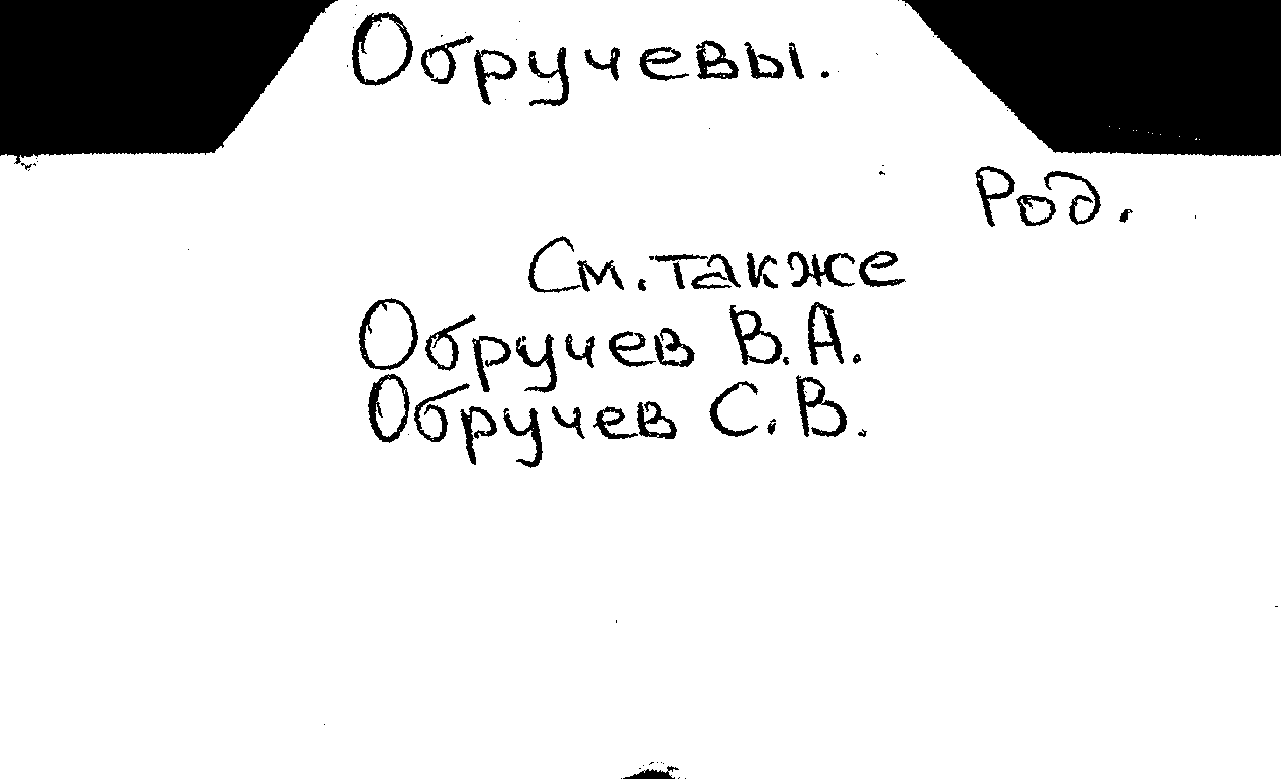 Обручевы.
Род.
См. также
Обручев В.А.
Обручев С.В.